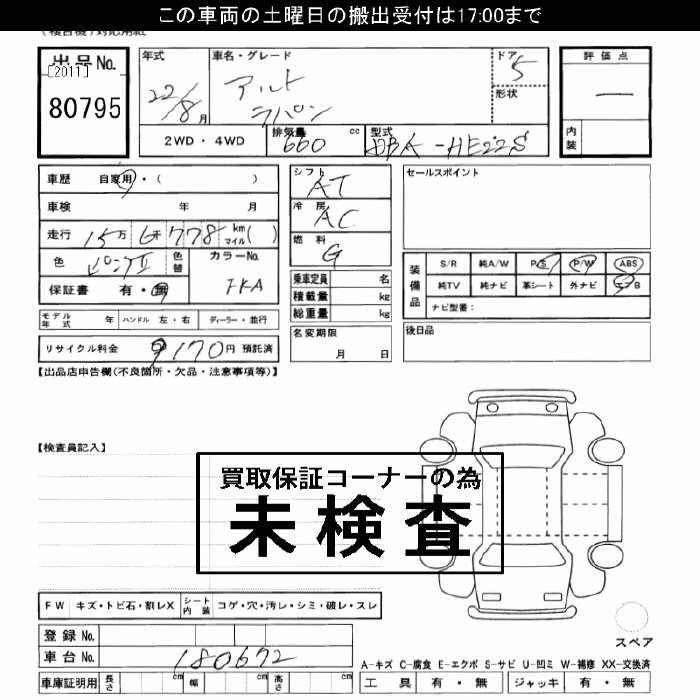 この車両の土曜日の搬出受付は17:00まで
出品No.
[2011]
80795
年式
22/8月
車名・グレード
アルト
ラパン
ドア
5
形状
評価点
―
内装
2WD・4WD
排気量
660
cc
型式
DBA-HE22S
車歴 自家用・( )
車検 年 月
走行 15万6千778 km マイル( )
色
ピンクII
色替
カラーNo.
保証書 有・無
シフト
AT
冷房
AC
燃料
G
乗車定員 名
積載量 kg
総重量 kg
名変期限
月 日
セールスポイント
装備品
S/R 純A/W P/S P/W ABS
純TV 純ナビ 革シート 外ナビ エアB
ナビ型番：
後日品
モデル年式 年 ハンドル 左・右 ディーラー・並行
リサイクル料金 9170円 預託済
【出品店申告欄(不良箇所・欠品・注意事項等)】
【検査員記入】
買取保証コーナーの為
未検査
FW キズ・トビ石・割レX シート内装 コゲ・穴・汚レ・シミ・破レ・スレ
登録No.
車台No. 180672
車庫証明用 長さ cm 幅 cm 高さ cm
スペア
A-キズ C-腐食 E-エクボ S-サビ U-凹ミ W-補修 XX-交換済
工具 有・無 ジャッキ 有・無